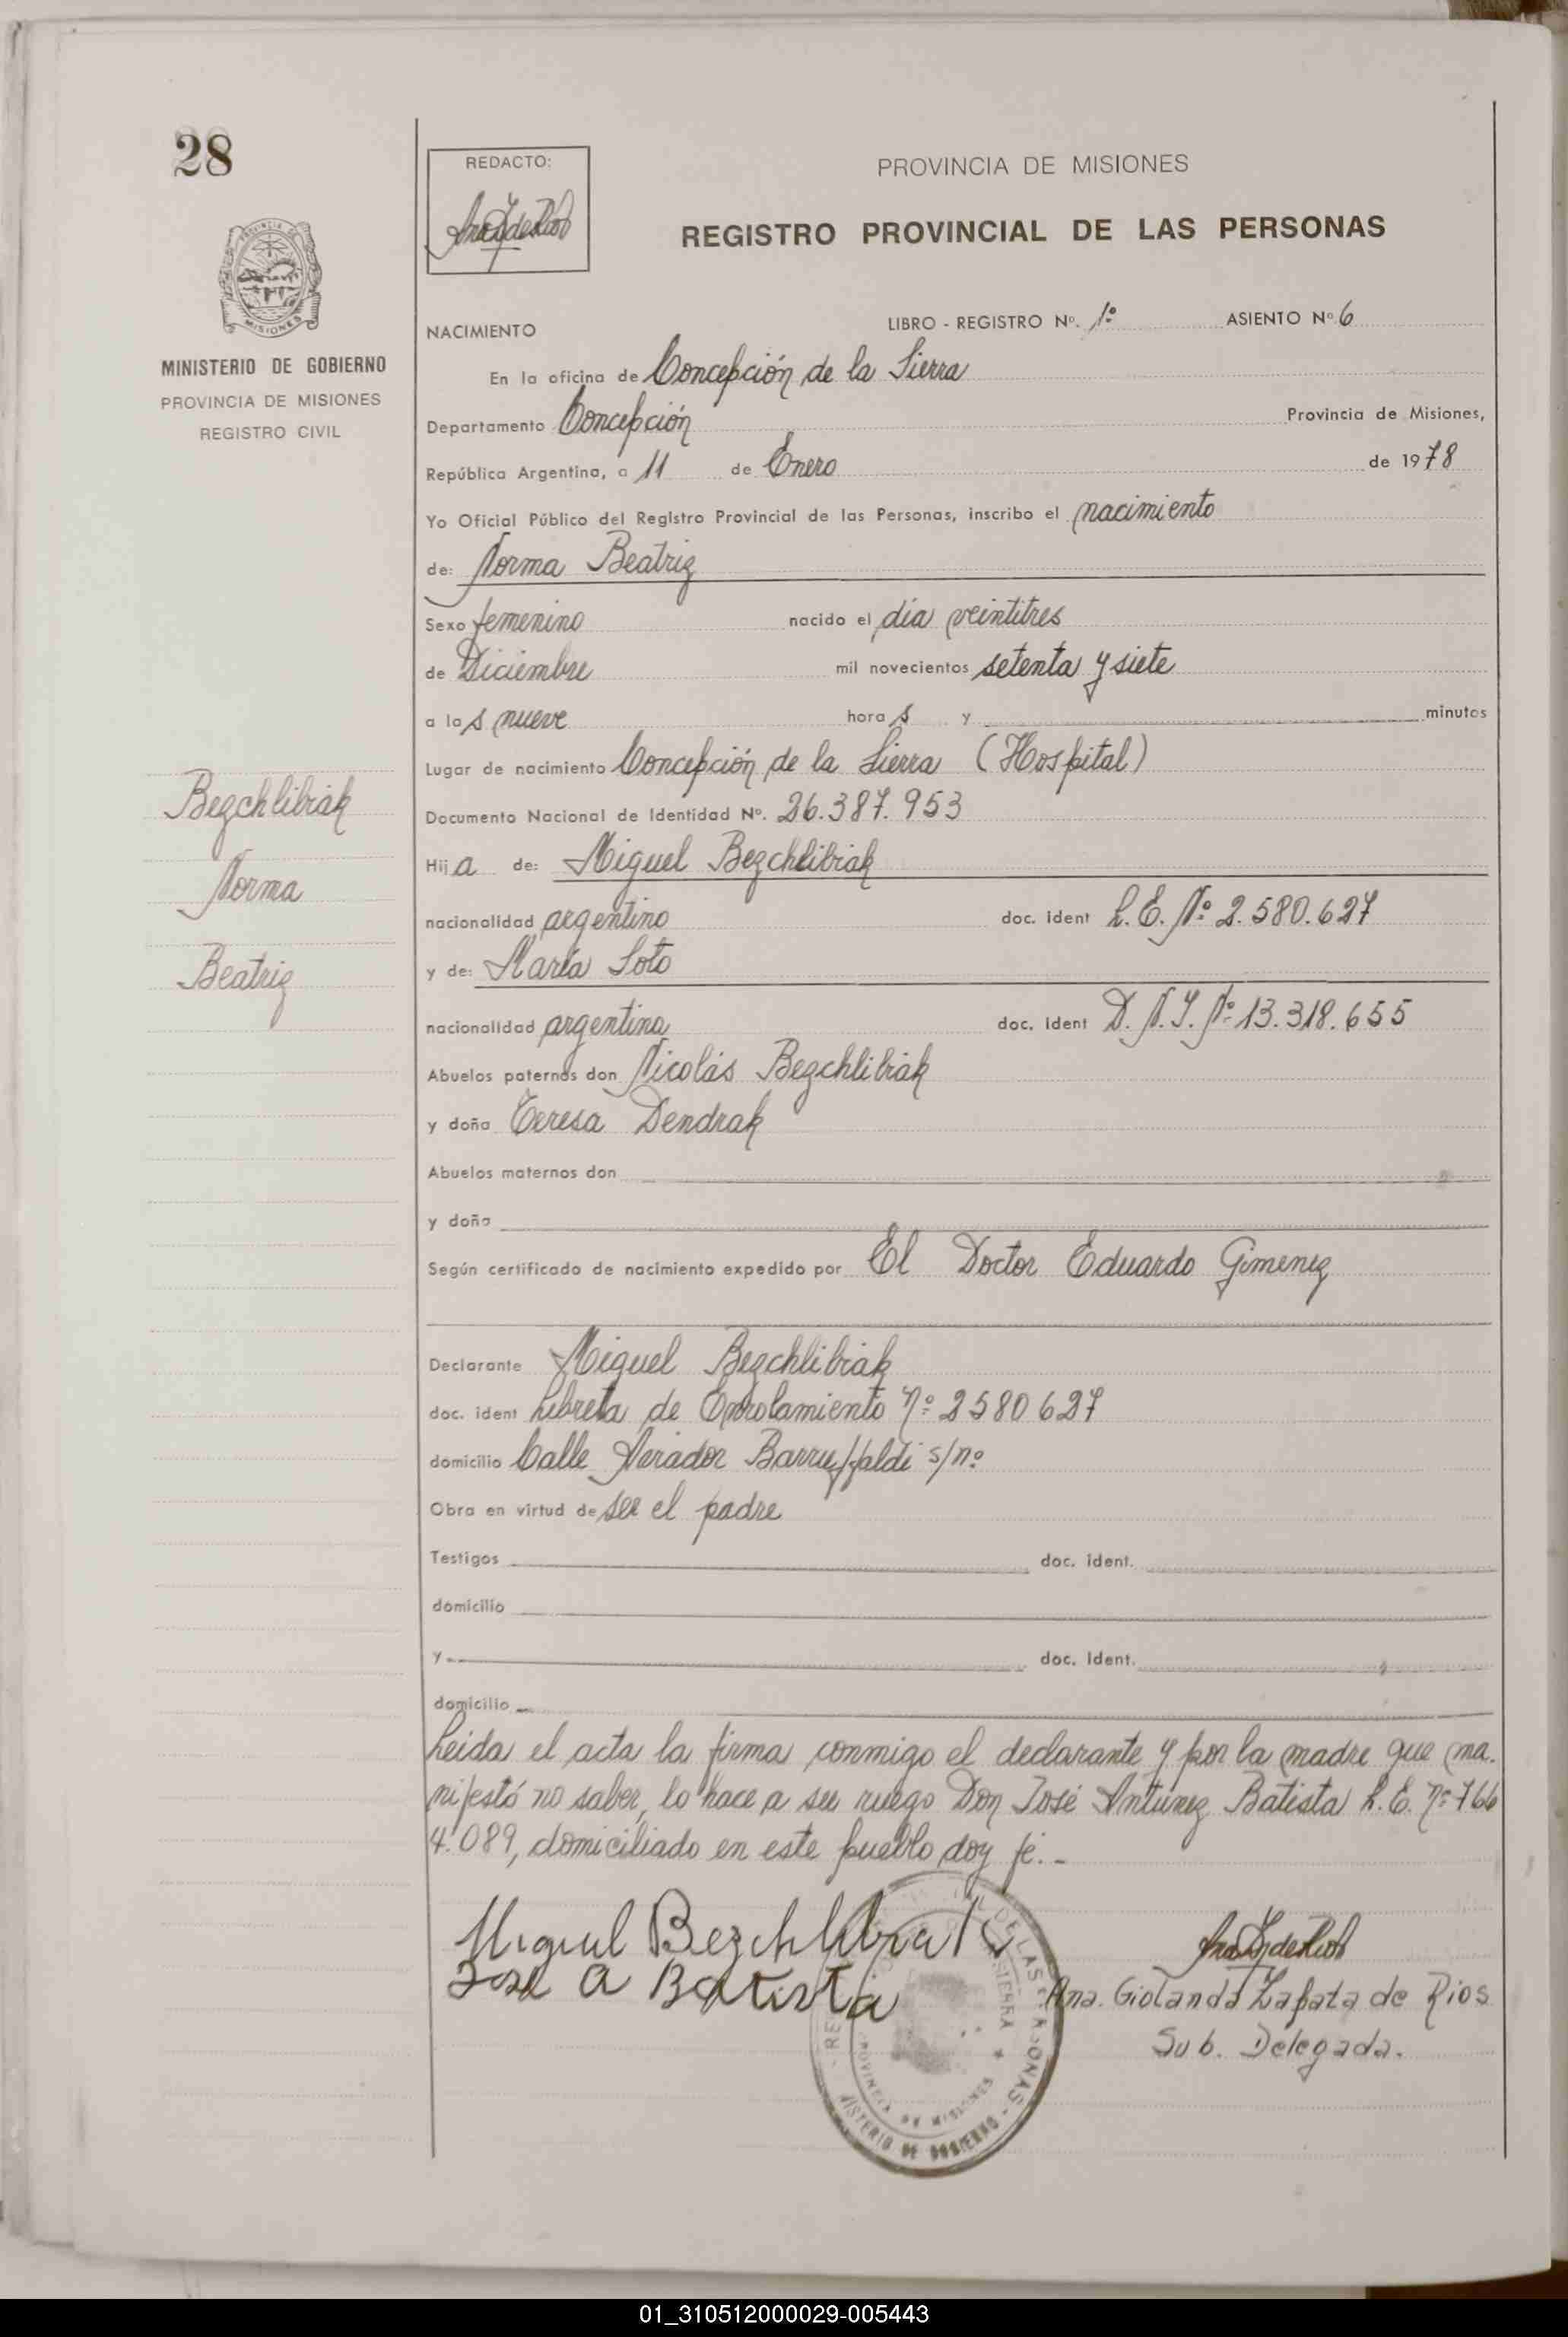 28
REDACTO:
PROVINCIA DE MISIONES
REGISTRO PROVINCIAL DE LAS PERSONAS
MISIONES
MINISTERIO DE GOBIERNO
PROVINCIA DE MISIONES
REGISTRO CIVIL
NACIMIENTO LIBRO - REGISTRO Nº. 1º ASIENTO Nº 6
En la oficina de Concepción de la Sierra
Departamento Concepción Provincia de Misiones,
República Argentina, a 11 de Enero de 1978
Yo Oficial Público del Registro Provincial de las Personas, inscribo el nacimiento
de: Norma Beatriz
Sexo femenino nacido el día veintitres
de Diciembre mil novecientos setenta y siete
a las nueve horas y minutos
Lugar de nacimiento Concepción de la Sierra (Hospital)
Documento Nacional de Identidad Nº. 26.387.953
Bezchlibiak
Norma
Beatriz
Hija de: Miguel Bezchlibiak
nacionalidad argentino doc. ident L.E. Nº 2.580.627
y de: María Soto
nacionalidad argentina doc. ident D.N.I. Nº 13.318.655
Abuelos paternos don Nicolás Bezchlibiak
y doña Teresa Dendrak
Abuelos maternos don
y doña
Según certificado de nacimiento expedido por El Doctor Eduardo Gimenez
Declarante Miguel Bezchlibiak
doc. ident Libreta de Enrolamiento Nº 2580627
domicilio Calle Barruffaldi s/nº
Obra en virtud de ser el padre
Testigos doc. ident.
domicilio
y doc. ident.
domicilio
Leida el acta la firma conmigo el declarante y por la madre que ma-
nifestó no saber, lo hace a su ruego Don José Antunez Batista L.E. nº 766
4.089, domiciliado en este pueblo, doy fé.-
Miguel Bezchlibiak
José A Batista
Ana Giolanda Zapata de Rios
Sub. Delegada.
PROVINCIA DE MISIONES
MINISTERIO DE GOBIERNO
01_310512000029-005443